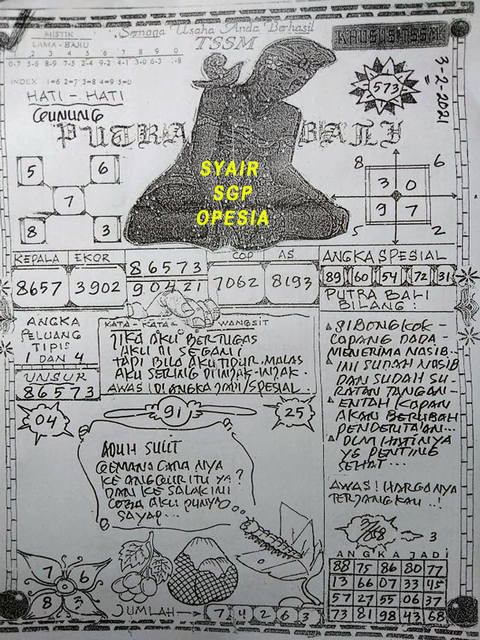 Semoga Usaha Anda Berhasil
TSSM
MISTIK
LAMA - BARU
1 2 3 4 5 6 7 8 9 0
INDEX 1=6 2=7 3=8 4=9 5=0
KHUSUS TSSM
573
3-2-2021
HATI - HATI
GUNUNG
PUTRA BALI
SYAIR
SGP
OPESIA
5 6
7
8 3
8 6
3 0
9 7
5 2
KEPALA EKOR
8657 3902
86573
90421
COP AS
7062 8193
ANGKA SPESIAL
89 60 54 72 31
ANGKA
PELUANG
TIPIS
1 DAN 4
UNSUR
86573
KATA - KATA WANGSIT
JIKA AKU BERTUGAS
AKU DI SEGANI
TAPI BILA AKU TIDUR MALAS
AKU SERING DI INJAK-INJAK.
AWAS! DI ANGKA JADI/SPESIAL.
PUTRA BALI
BILANG:
SIBONGKOK-
COPANG DADA-
MENERIMA NASIB...
INI SUDAH NASIB
DAN SUDAH SU-
RATAN TANGAN-
ENTAH KAPAN
AKAN BERUBAH
PENDERITAAN...
DLM HATINYA
YG PENTING
SEHAT...
AWAS! HARGANYA
TERJANGKAU..!
04
91
25
ADUH SULIT
GEMANA CARANYA
KE ANGGUR ITU YA?
DAN KE SALAK INI
COBA AKU PUNYA
SAYAP...
3
7 6
8 3
JUMLAH 7 4 2 6 3
ANGKA JADI
88 75 86 80 77
13 66 07 33 45
57 27 55 06 37
73 81 98 43 68